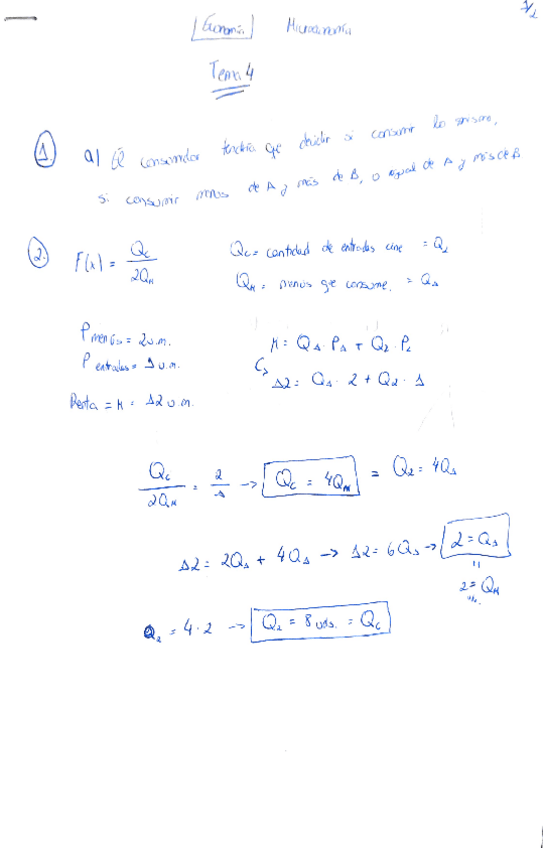 1/2
Economía Microeconomía
Tema 4
1. a) El consumidor tendría que decidir si consumir lo mismo,
si consumir menos de A y más de B, o igual de A y más de B
2. F(x) = Qc / 2QM Qc = cantidad de entradas cine = Q2
QM = menús que consume. = Q1
P menús = 2 u.m. M = Q1 · P1 + Q2 · P2
P entradas = 1 u.m. ↳ 12 = Q1 · 2 + Q2 · 1
Renta = M = 12 u.m.
Qc / 2QM = 2 / 1 -> Qc = 4QM = Q2 = 4Q1
12 = 2Q1 + 4Q1 -> 12 = 6Q1 -> 2 = Q1
"
2 = QM
uds.
Q2 = 4 · 2 -> Q2 = 8 uds. = Qc